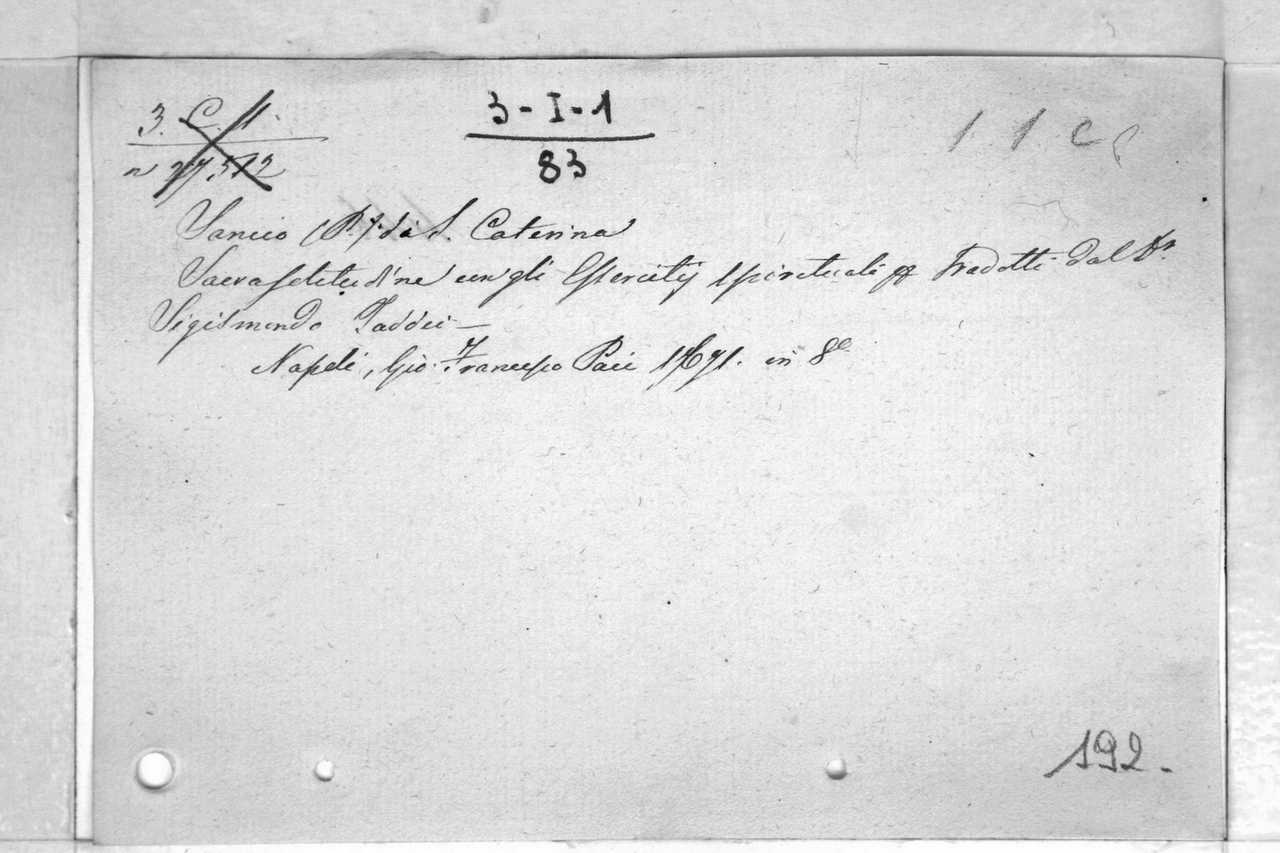 3. C. 11.
n 27,512
3-I-1
83
1 1 c
(P.) di S. Caterina
Sacra solitudine con gli Esercitij spirituali Tradotti dal Dr.
Sigismondo Taddei —
Napoli, Gio: Francesco Paci 1671. in 8º
192.